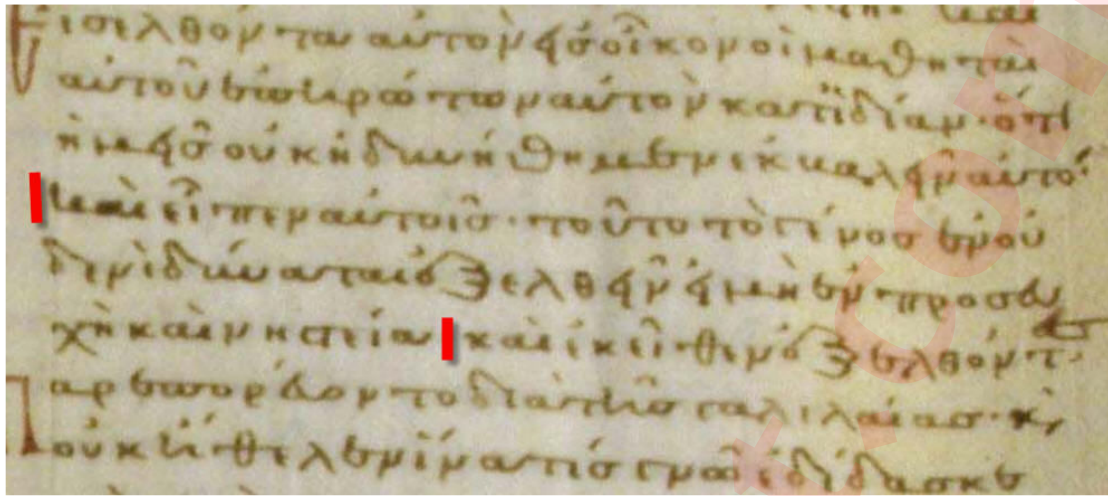 Εἰσελθόντα αὐτὸν εἰς οἶκον οἱ μαθηταὶ
αὐτοῦ ἐπηρώτων αὐτὸν κατϊδίαν· ὅτι
ἡμεῖς οὐκ ἠδυνήθημεν ἐκβαλεῖν αὐτό·
καὶ εἶπεν αὐτοῖς· τοῦτο τὸ γένος ἐν οὐ
δενὶ δύναται ἐξελθεῖν εἰ μὴ ἐν προσευ
χῆ καὶ νηστεία καὶ ἐκεῖθεν ἐξελθόντ
Παρεπορεύοντο διὰ τῆς γαλιλαίας· κϗ
οὐκ ἤθελεν ἵνα τίς γνῶ ἐδίδασκε
.com